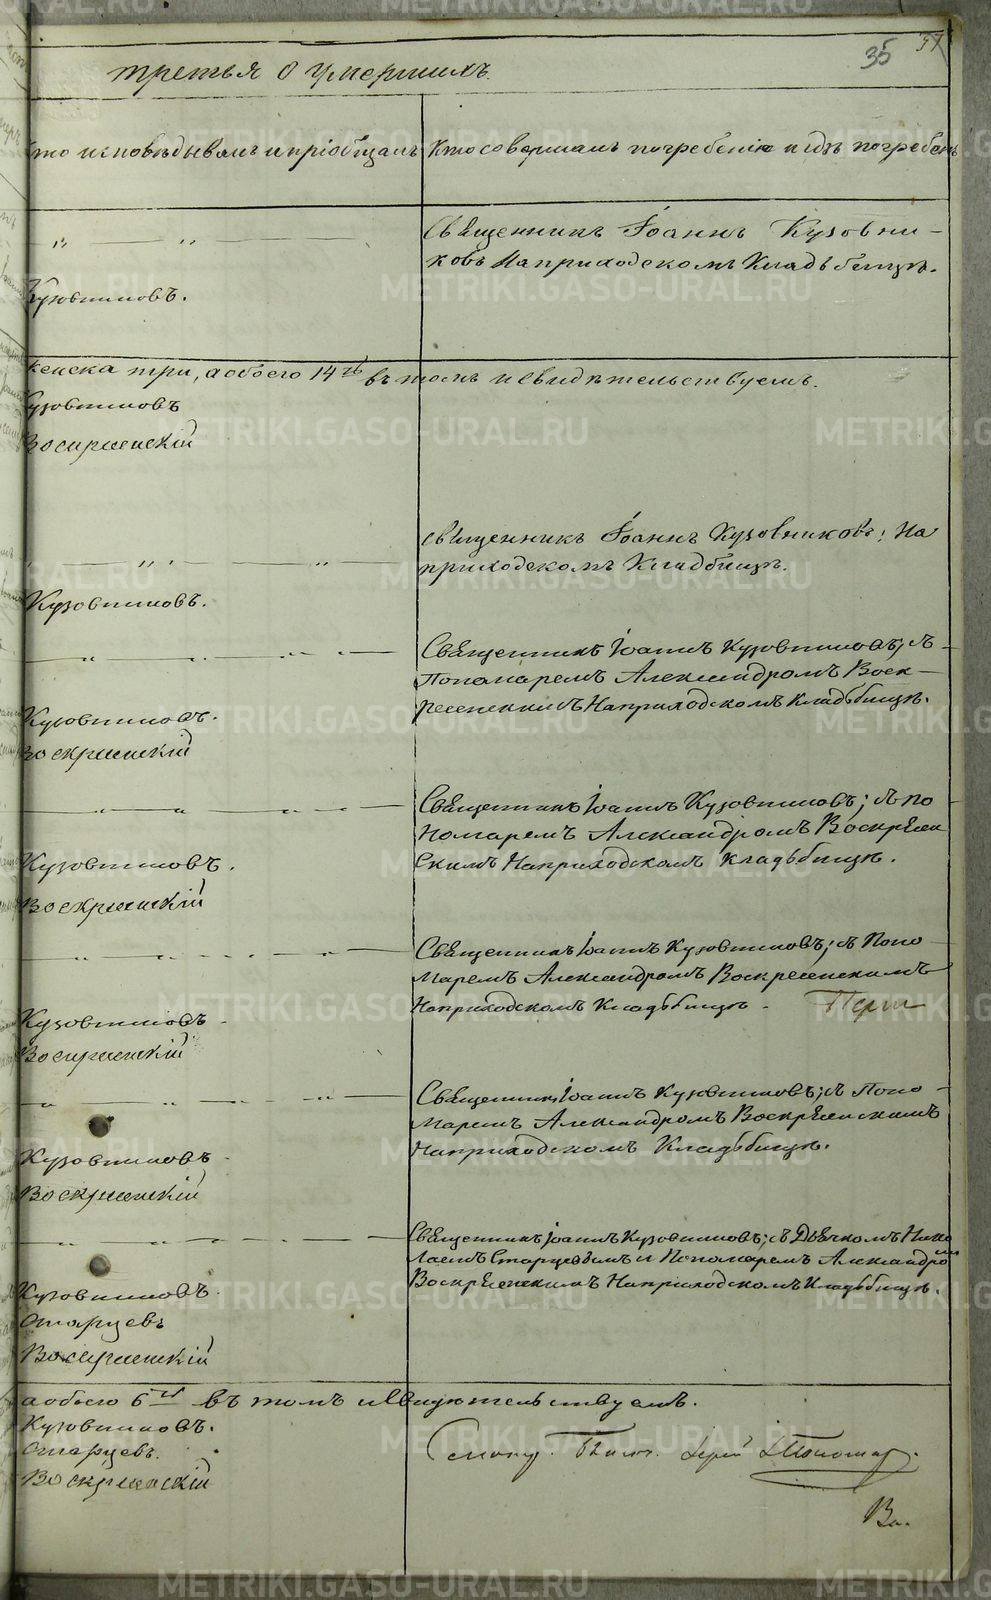 35 37
третья о умершихъ.
кто исповѣдывалъ и пріобщалъ
Кто совершалъ погребеніе и гдѣ погребенъ
Священникъ Іоаннъ Кузовни-
ковъ На приходскомъ Кладбищѣ.
Кузовниковъ.
женска три, а обоего 14ть въ томъ и свидѣтельствуемъ.
Кузовниковъ
Воскресенскій
священникъ Іоаннъ Кузовниковъ; На
приходскомъ Кладбищѣ.
Кузовниковъ.
Священникъ Іоаннъ Кузовниковъ; съ
Пономаремъ Александромъ Воск-
ресенскимъ На приходскомъ кладьбищѣ.
Кузовниковъ.
Воскресенскій
Священникъ Іоаннъ Кузовниковъ; съ по
номаремъ Александромъ Воскресен
скимъ На приходскомъ кладьбищѣ.
Кузовниковъ.
Воскресенскій
Священникъ Іоаннъ Кузовниковъ; съ Поно
маремъ Александромъ Воскресенскимъ
На приходскомъ Кладьбищѣ.
Кузовниковъ
Воскресенскій
Священникъ Іоаннъ Кузовниковъ; съ Поно-
маремъ Александромъ Воскресенскимъ
На приходскомъ Кладьбищѣ.
Кузовниковъ
Воскресенскій
Священникъ Іоаннъ Кузовниковъ; съ Дьячкомъ Нико
лаемъ Старцевымъ и Пономаремъ Александромъ
Воскресенскимъ На приходскомъ Кладьбищѣ.
Кузовниковъ.
Старцевъ
Воскресенскій
а обоего 6ть въ томъ и свидѣтельствуемъ.
Кузовниковъ.
Старцевъ.
Воскресенскій
Ва.
METRIKI.GASO-URAL.RU